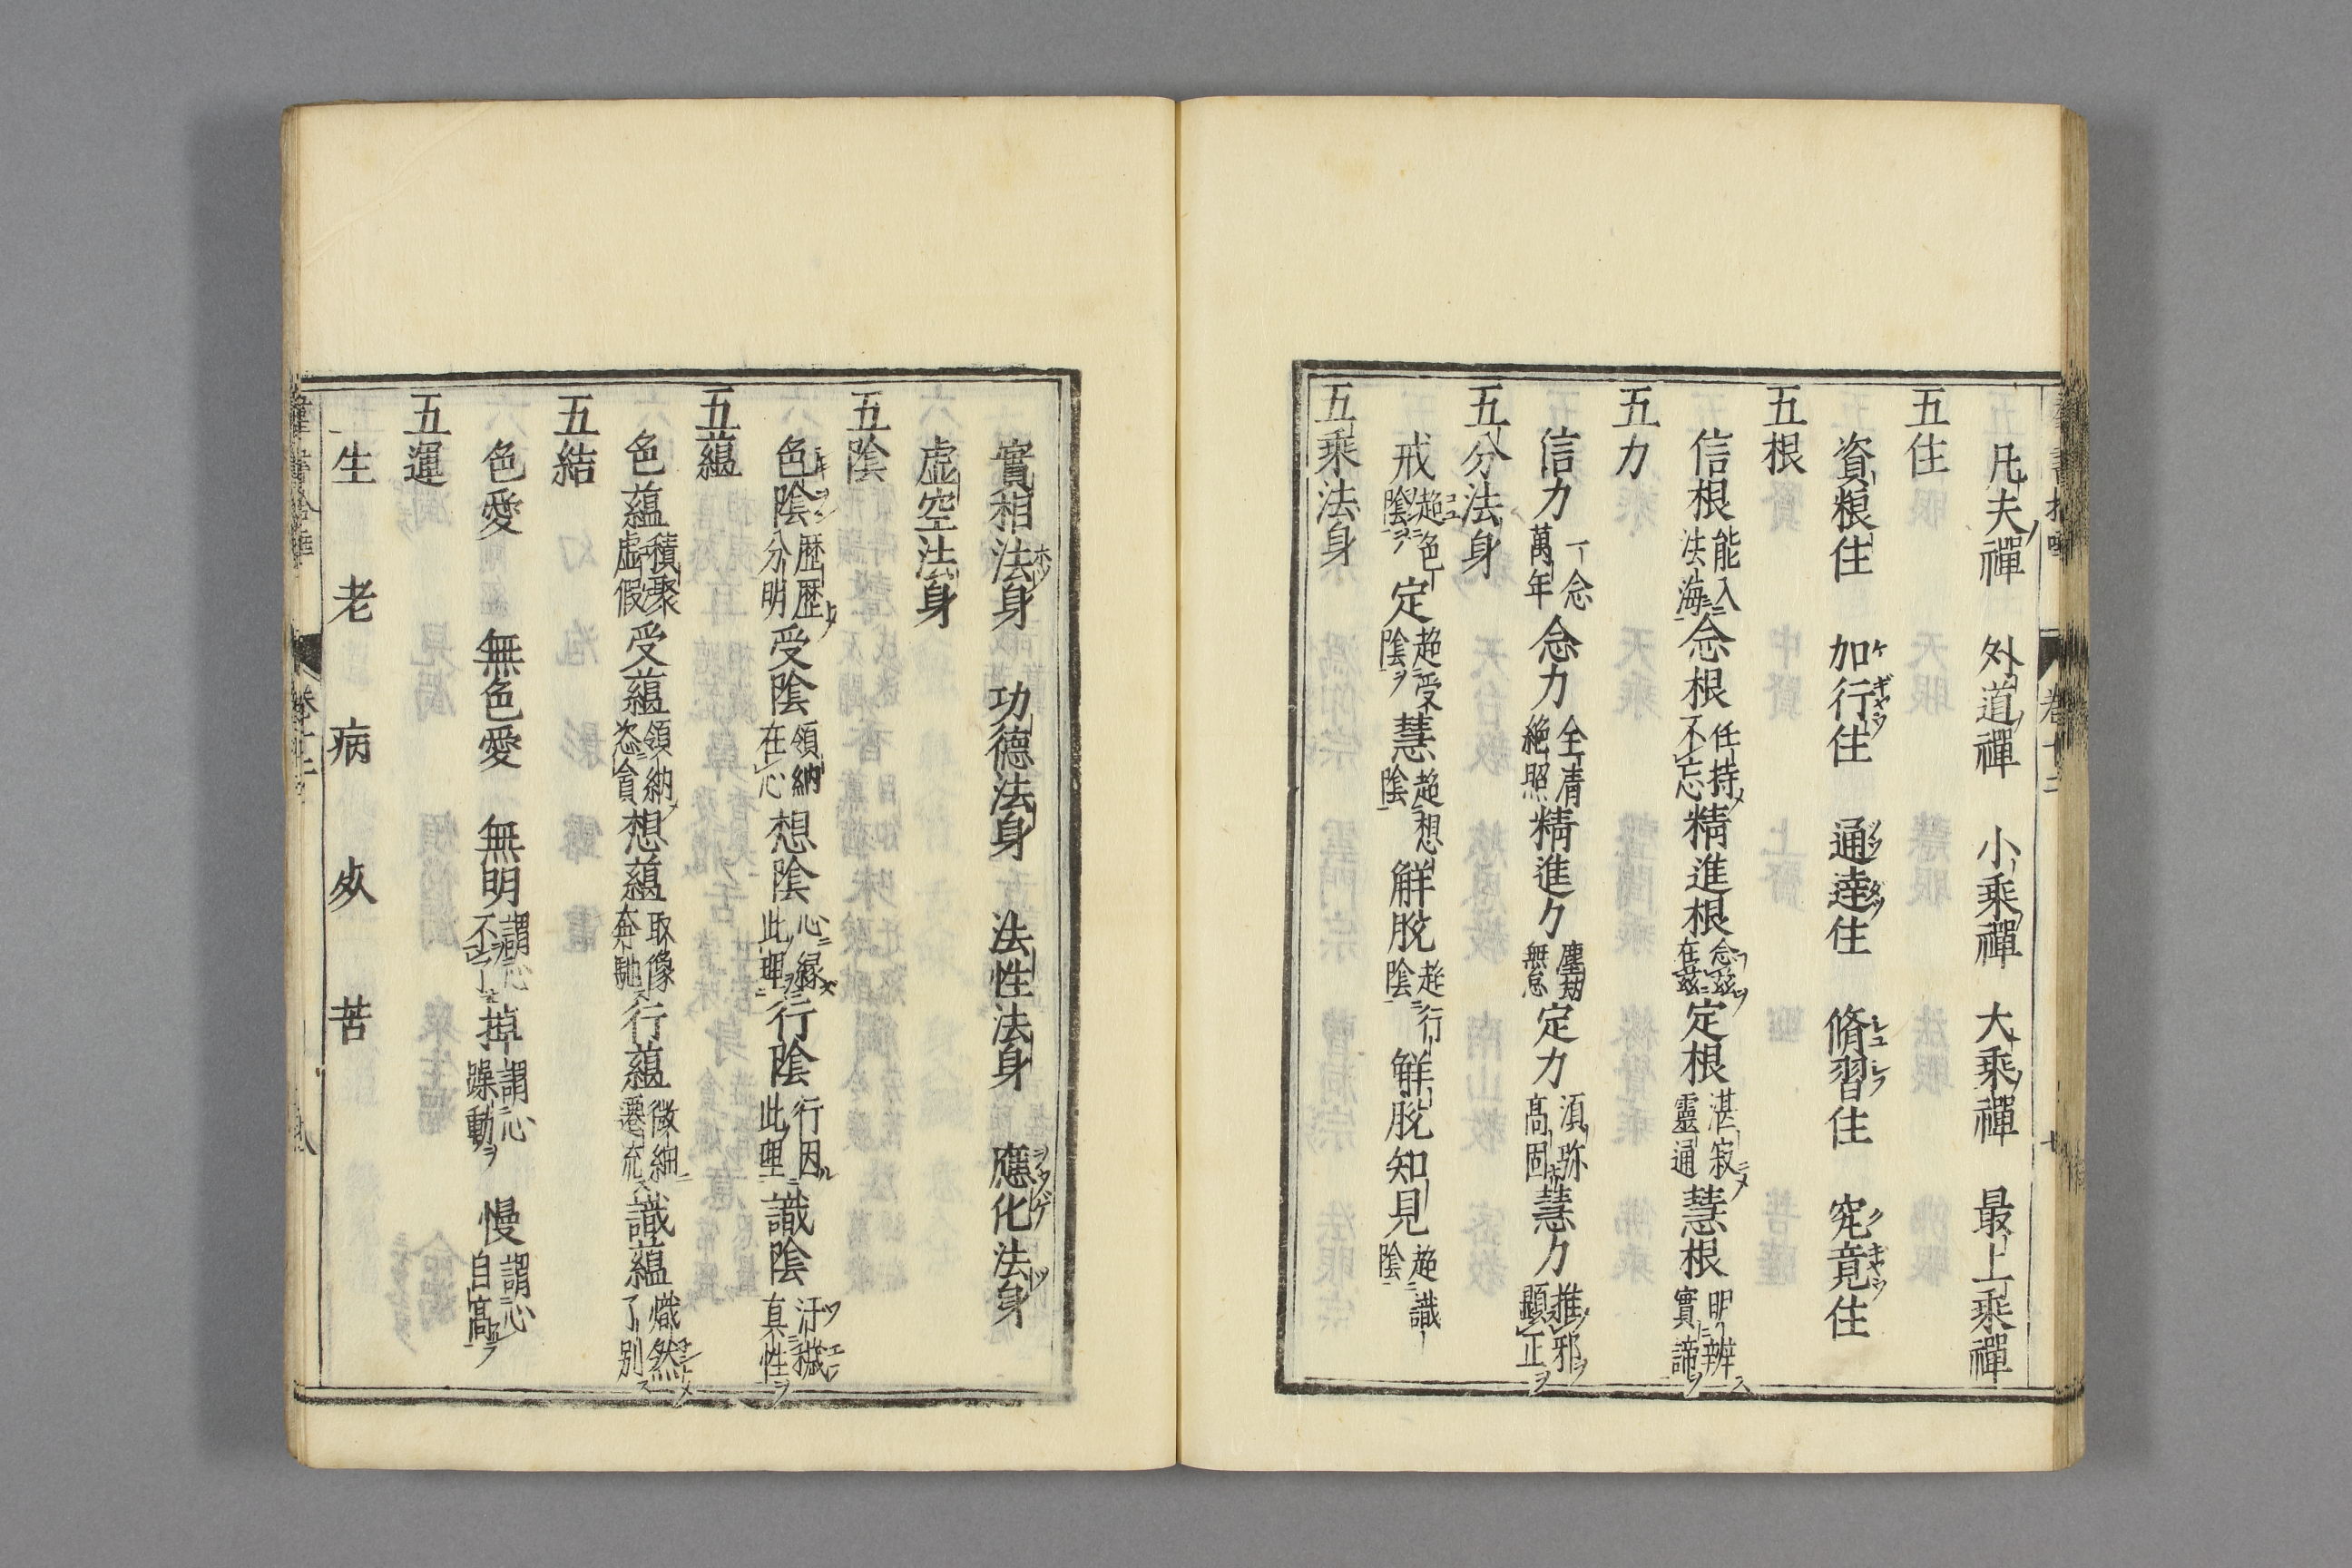 凡夫禪　外道禪　小乘禪　大乘禪　最上乘禪
五住
資粮住　加行住　通達住　脩習住　究竟住
五根
信根能入法海念根任持不忘精進根念茲在茲定根湛寂靈通慧根明辨實諦
五力
信力一念萬年念力全清絶照精進力塵劫無怠定力須弥高固慧力推邪顯正
五分法身
戒超色陰定超受陰慧超想陰解脫超行陰解脫知見超識陰
五乘法身
實相法身　功德法身　法性法身　應化法身
虛空法身
五陰
色陰歷歷分明受陰領納在心想陰心緣此理行陰行因此理識陰汙穢真性
五蘊
色蘊積聚虛假受蘊領納恣貪想蘊取像奔馳行蘊微細遷流識蘊熾然了別
五結
色愛　無色愛　無明謂心不了掉謂心躁動　慢謂心自高
五運
生　老　病　死　苦